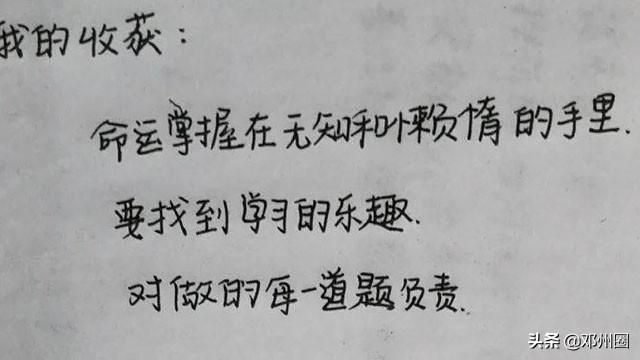 我的收获:
命运掌握在无知和懒惰的手里.
要找到学习的乐趣.
对做的每一道题负责.
头条 @邓州圈